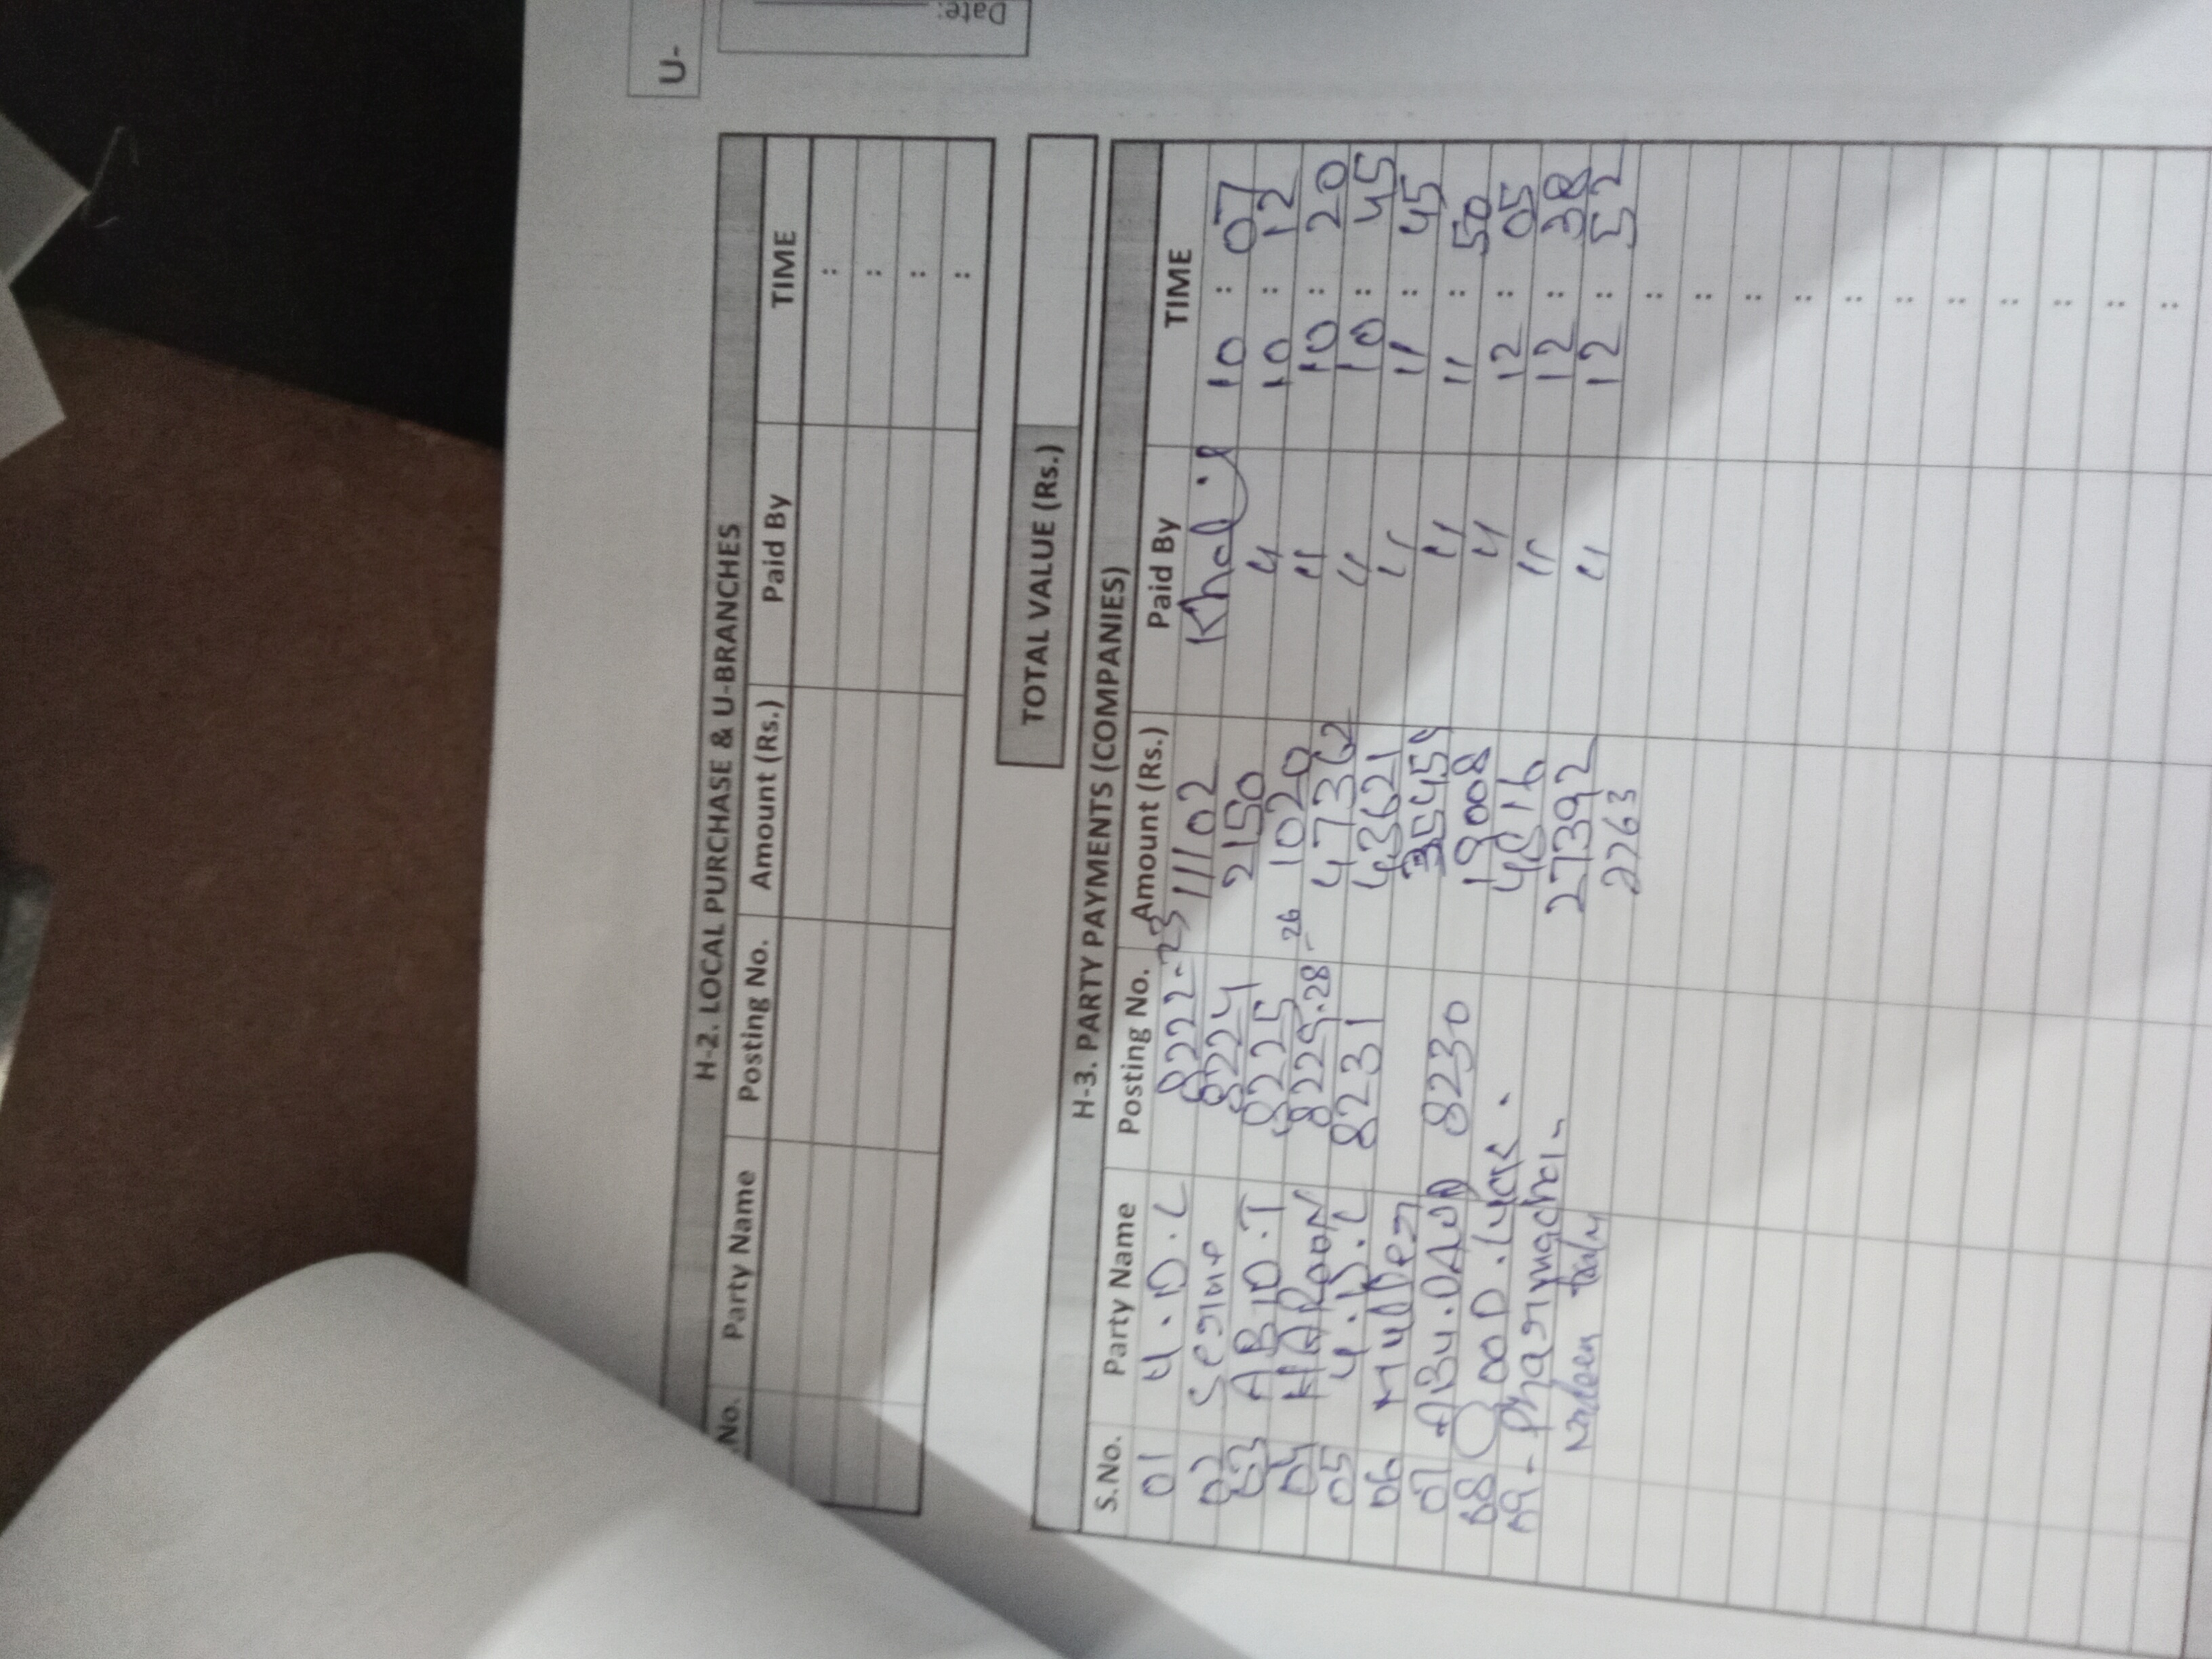 U-
Date:
H-2. LOCAL PURCHASE & U-BRANCHES
No. Party Name Posting No. Amount (Rs.) Paid By TIME
:
:
:
:
TOTAL VALUE (Rs.)
H-3. PARTY PAYMENTS (COMPANIES)
S.No. Party Name Posting No. Amount (Rs.) Paid By TIME
01 U.D.L 8222-23 11102 10 : 07
02 8224 2150 " 10 : 12
03 ABID.T 8225 -26 1020 " 10 : 20
04 HAROON 47362 " 10 : 45
05 U.D.L 8231 43621 " 11 : 45
06 " 11 : 50
07 ABU.DAUD 8230 19008 " 12 : 05
08 GOOD.LUCK. " 12 : 38
09- 27392 " 12 : 52
2263